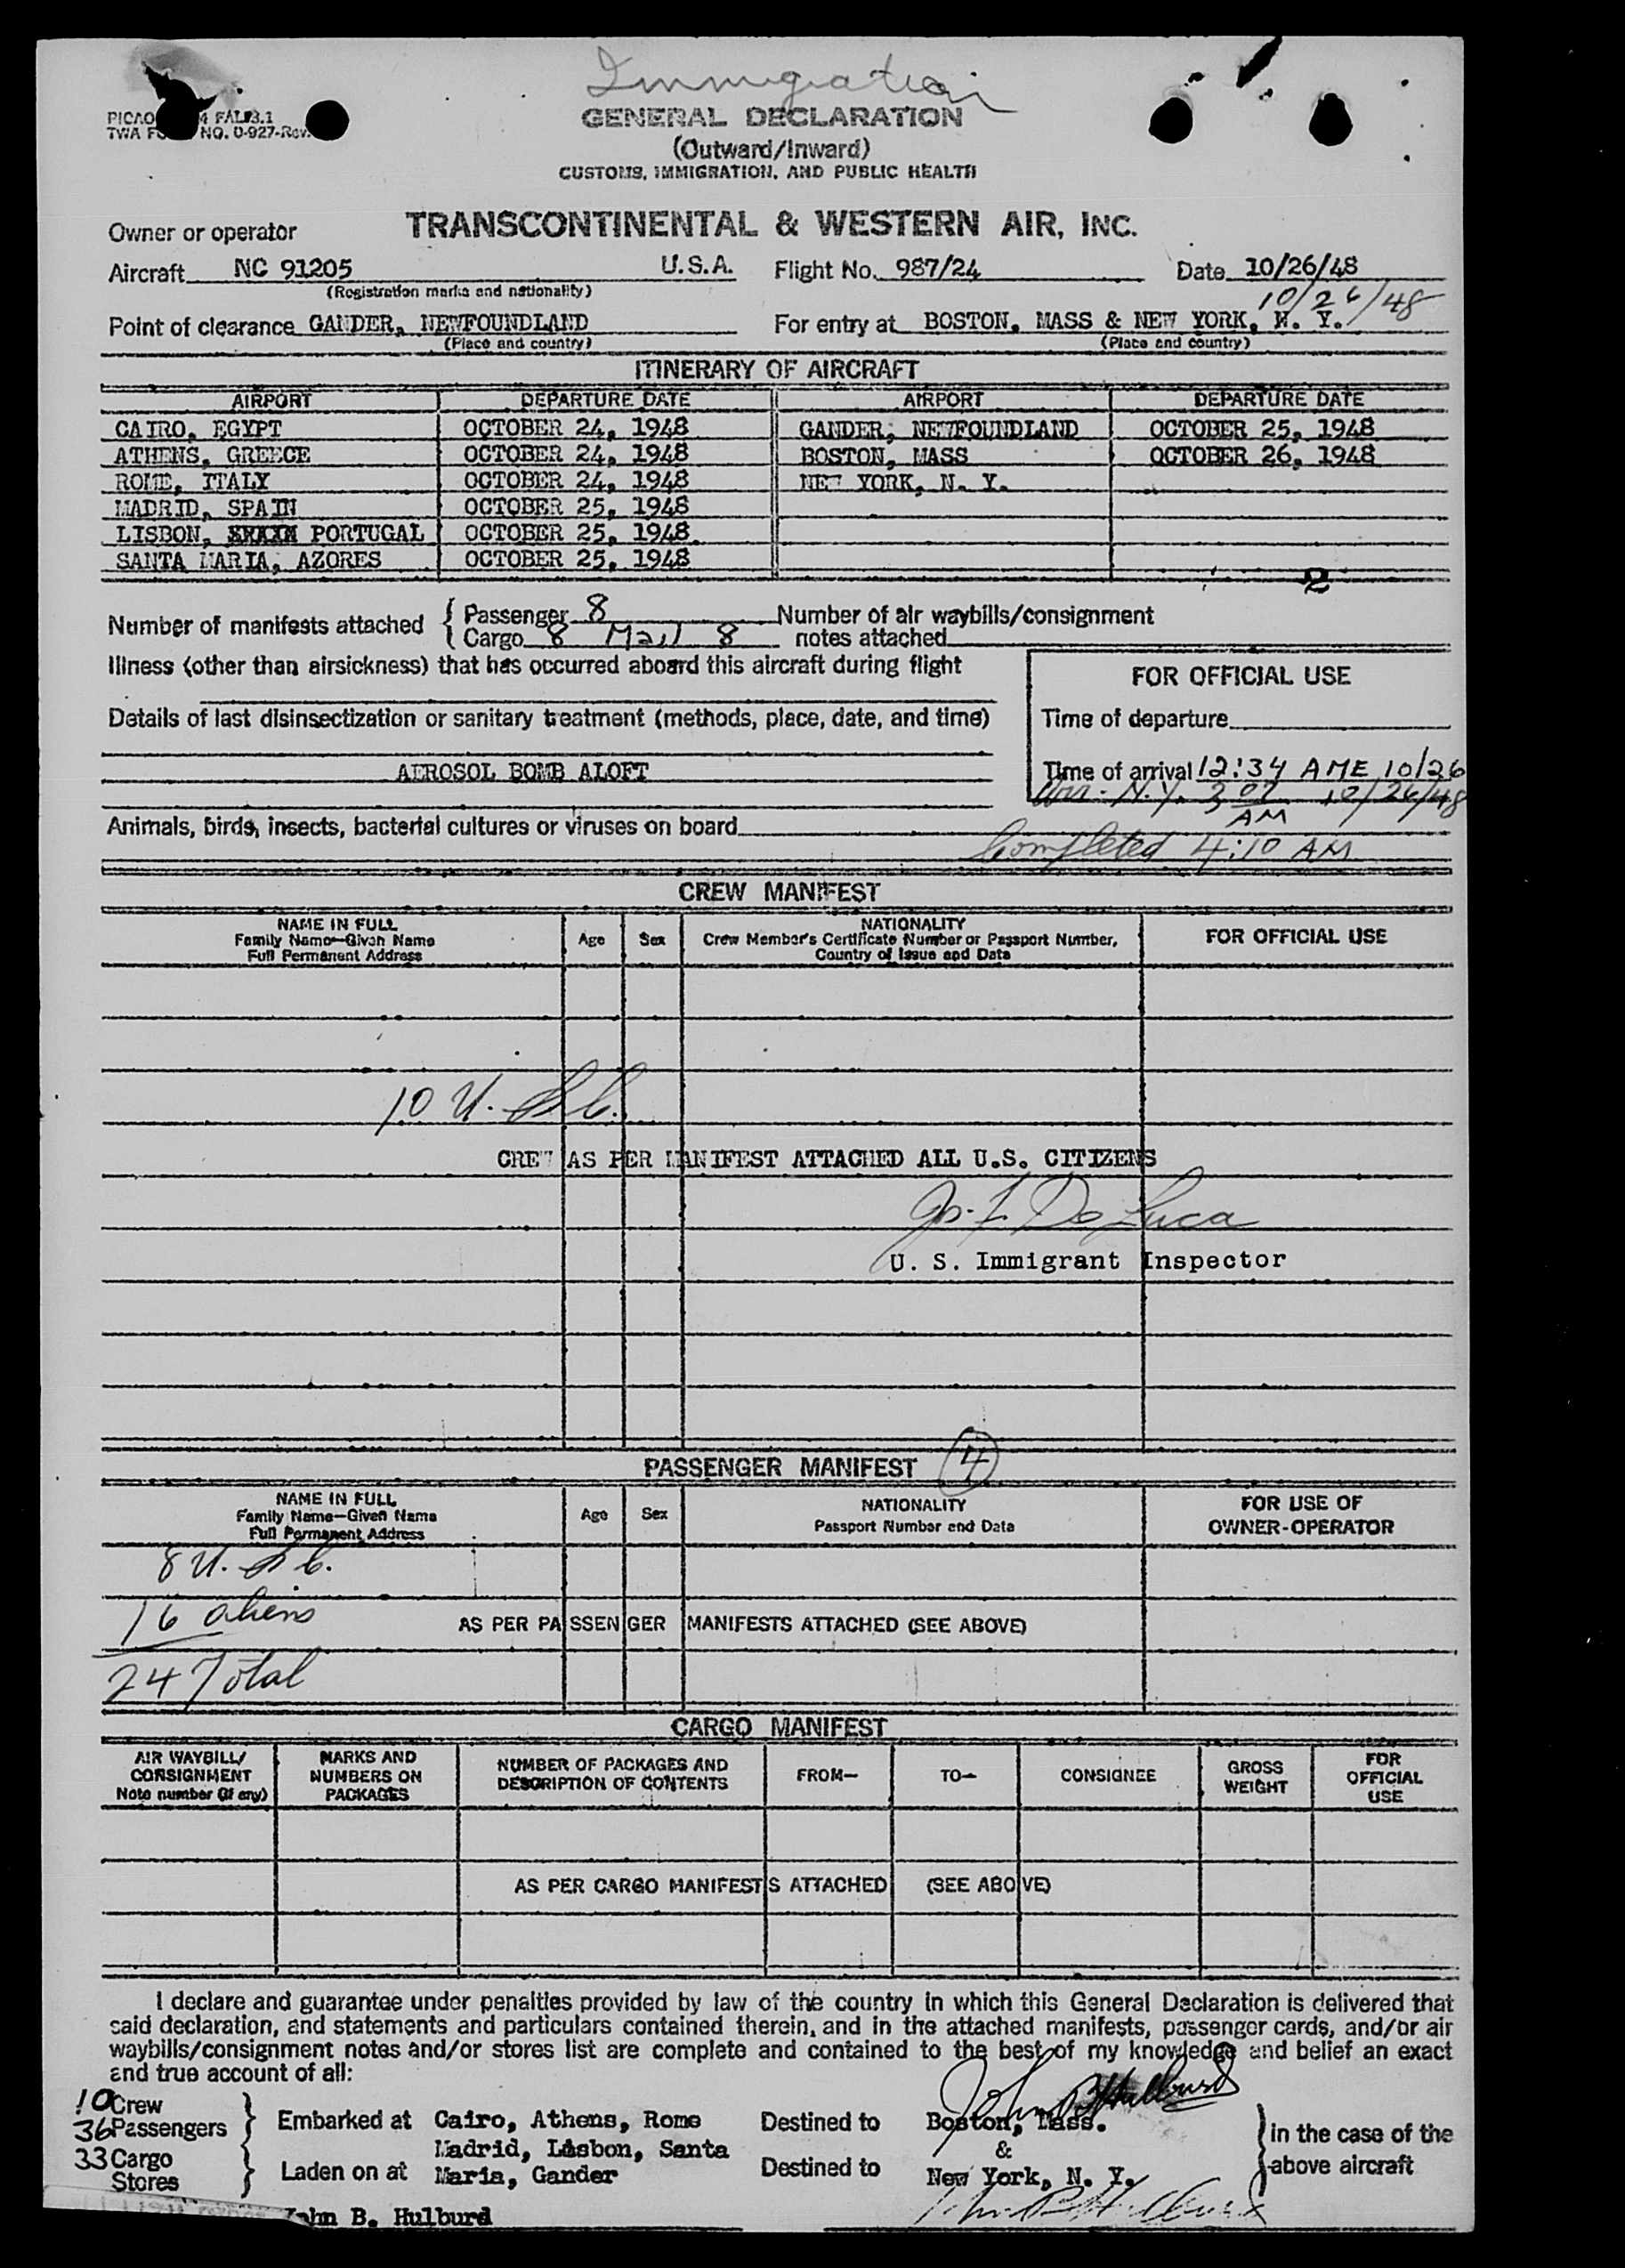 Immigration
PICAO FAL 3.1
TWA NO. O-927-Rev.
GENERAL DECLARATION
(Outward/Inward)
CUSTOMS, IMMIGRATION, AND PUBLIC HEALTH
Owner or operator TRANSCONTINENTAL & WESTERN AIR, INC.
Aircraft NC 91205 U.S.A. Flight No. 987/24 Date 10/26/48
(Registration marks and nationality)
10/26/48
Point of clearance GANDER, NEWFOUNDLAND For entry at BOSTON, MASS & NEW YORK, N. Y.
(Place and country) (Place and country)
ITINERARY OF AIRCRAFT
AIRPORT DEPARTURE DATE AIRPORT DEPARTURE DATE
CAIRO, EGYPT OCTOBER 24, 1948 GANDER, NEWFOUNDLAND OCTOBER 25, 1948
ATHENS, GREECE OCTOBER 24, 1948 BOSTON, MASS OCTOBER 26, 1948
ROME, ITALY OCTOBER 24, 1948 NEW YORK, N. Y.
MADRID, SPAIN OCTOBER 25, 1948
LISBON, PORTUGAL OCTOBER 25, 1948
SANTA MARIA, AZORES OCTOBER 25, 1948
2
Number of manifests attached { Passenger 8 Number of air waybills/consignment
Cargo 8 Mail 8 notes attached
Illness (other than airsickness) that has occurred aboard this aircraft during flight
FOR OFFICIAL USE
Details of last disinsectization or sanitary treatment (methods, place, date, and time)
Time of departure
AEROSOL BOMB ALOFT
Time of arrival 12:34 AME 10/26
Arr. N.Y. 3 07 AM 10/26/48
Animals, birds, insects, bacterial cultures or viruses on board
Completed 4:10 AM
CREW MANIFEST
NAME IN FULL Age Sex NATIONALITY FOR OFFICIAL USE
Family Name—Given Name Crew Member's Certificate Number or Passport Number,
Full Permanent Address Country of Issue and Date
10 U.S.C.
CREW AS PER MANIFEST ATTACHED ALL U.S. CITIZENS
De Luca
U. S. Immigrant Inspector
PASSENGER MANIFEST 4
NAME IN FULL Age Sex NATIONALITY FOR USE OF
Family Name—Given Name Passport Number and Date OWNER-OPERATOR
Full Permanent Address
8 U.S.C.
16 aliens
AS PER PASSENGER MANIFESTS ATTACHED (SEE ABOVE)
24 Total
CARGO MANIFEST
AIR WAYBILL/ MARKS AND NUMBER OF PACKAGES AND FROM— TO— CONSIGNEE GROSS FOR
CONSIGNMENT NUMBERS ON DESCRIPTION OF CONTENTS WEIGHT OFFICIAL
Note number (if any) PACKAGES USE
AS PER CARGO MANIFESTS ATTACHED (SEE ABOVE)
I declare and guarantee under penalties provided by law of the country in which this General Declaration is delivered that
said declaration, and statements and particulars contained therein, and in the attached manifests, passenger cards, and/or air
waybills/consignment notes and/or stores list are complete and contained to the best of my knowledge and belief an exact
and true account of all:
John B Hulburd
10 Crew
36 Passengers } Embarked at Cairo, Athens, Rome Destined to Boston, Mass. } in the case of the
33 Cargo Madrid, Lisbon, Santa &
Stores } Laden on at Maria, Gander Destined to New York, N. Y. above aircraft
John B. Hulburd John B Hulburd